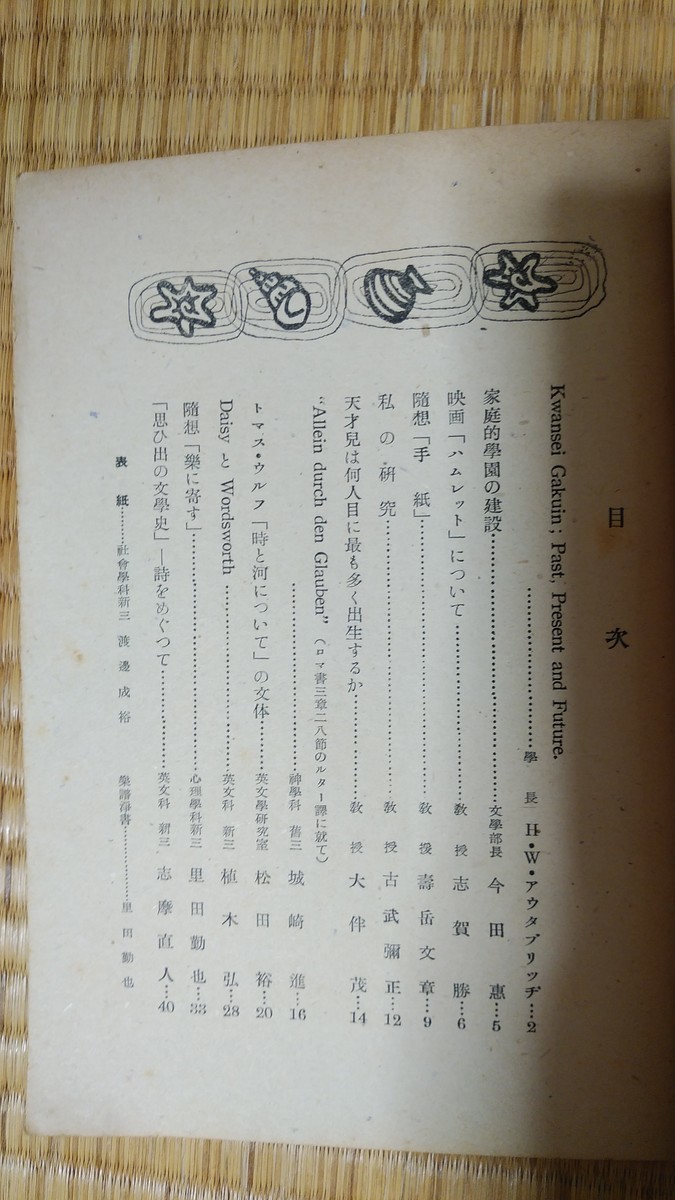 目次
Kwansei Gakuin ; Past, Present and Future.
……………………學長 H・W・アウタブリッヂ…2
家庭的學園の建設……………………文學部長 今田惠…5
映画「ハムレット」について……………………敎授 志賀勝…6
隨想「手紙」……………………敎授 壽岳文章…9
私の硏究……………………敎授 古武彌正…12
天才兒は何人目に最も多く出生するか……………………敎授 大伴茂…14
"Allein durch den Glauben"（ロマ書三章二八節のルター譯に就て）
……………………神學科 舊三 城崎進…16
トマス・ウルフ「時と河について」の文体………英文學硏究室 松田裕…20
Daisy と Wordsworth……………………英文科 新三 植木弘…28
隨想「樂に寄す」……………………心理學科新三 里田勤也…33
「思ひ出の文學史」―詩をめぐつて…………英文科 新三 志摩直人…40
表紙………社會學科新三 渡邊成裕 樂譜淨書……………里田勤也